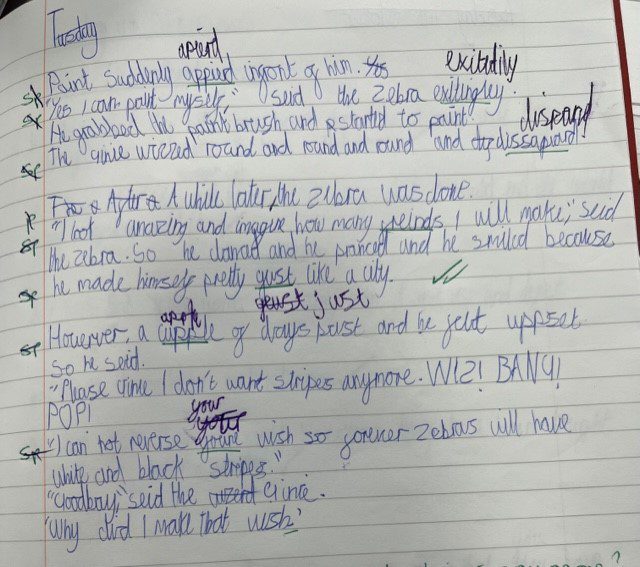 Tuesday
apierd
Paint Suddenly appierd infront of him. Yes
exitidily
sp
"Yes I can paint myself," said the Zebra exitingley.
sp
He grabbed the paint brush and started to paint
dispard
The Ginie wizzed round and round and round and dissapiard
sp
After A while later, the zebra was done.
p
"I look amazing and imagine how many freinds I will make," said
sp
the zebra. So he danced and he pranced and he smiled because
sp
he made himself pretty gust like a city.
geust just
apple
sp
However, a cupple of days past and he felt uppset.
so he said.
"Please Ginie I don't want stripes anymore. WIZ! BANG!
POP!
your
your
sp
"I can not reverse youre wish so forever Zebras will have
white and black stripes."
"Goodbay," said the Ginie.
'Why did I make that wish'